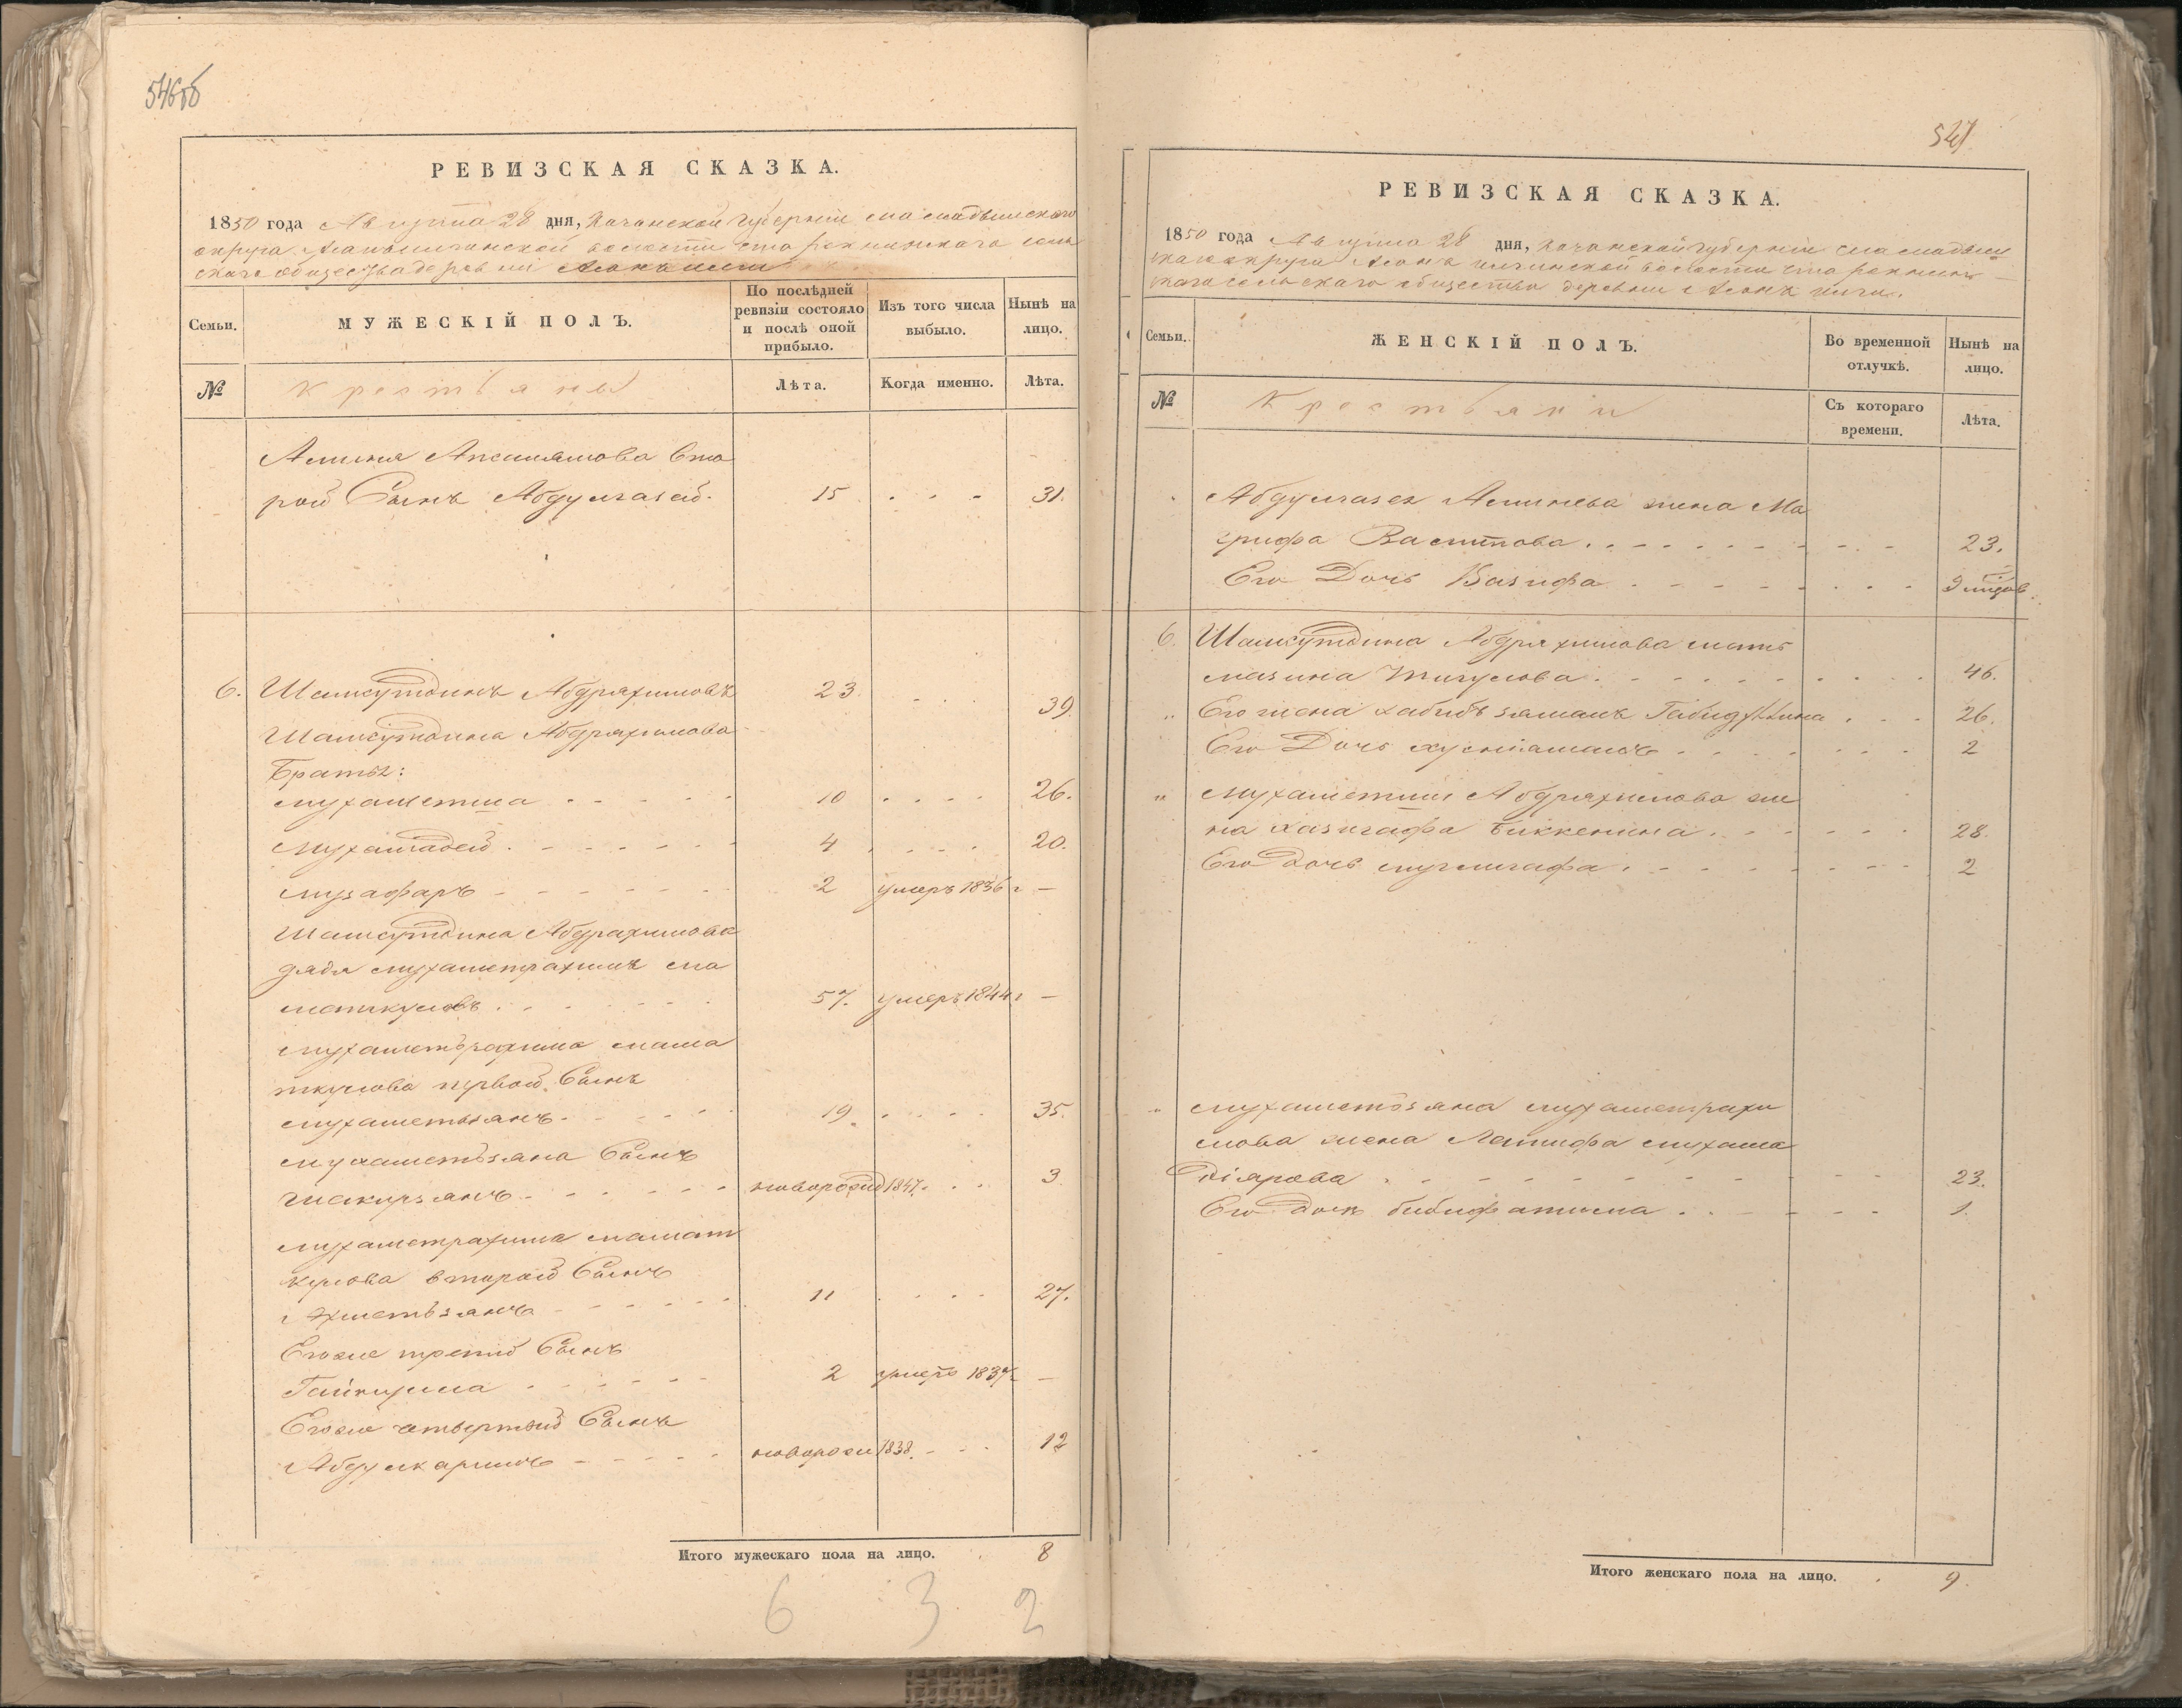 546об
РЕВИЗСКАЯ СКАЗКА.
1850 года Августа 28 дня, Казанской губерніи мамадышскаго
округа волости сель
скаго общества деревни
Семьи.
МУЖЕСКІЙ ПОЛЪ.
По послѣдней ревизіи состояло и послѣ оной прибыло.
Изъ того числа выбыло.
Нынѣ на лицо.
№
Крестьяны
Лѣта.
Когда именно.
Лѣта.
Амина Вто
рой Сынъ Абдулгазей. 15 31.
6. Шамсутдинъ Абдряхимовъ 23 39.
Шамсутдина Абдряхимова
Братья:
мухаметша 10 26.
Мухамадей 4 20.
музафаръ 2 умеръ 1836 г —
Шамсутдина Абдрахимова
дядя мухаметрахимъ ма
маткуловъ 57. умеръ 1844 г —
мухаметрахима мама
ткулова первой Сынъ
мухаметзянъ 19. 35.
мухаметзяна Сынъ
шакирзянъ новорожд 1847. 3
мухаметрахима мамат
кулова второй Сынъ
Ахметьзянъ 11 27.
Егоже третий Сынъ
2 умеръ 1837 г —
Егоже четвертый Сынъ
Абдулкаримъ новорож 1838. 12
Итого мужескаго пола на лицо. 8
6 3 2
547
РЕВИЗСКАЯ СКАЗКА.
1850 года Августа 28 дня, Казанской губерніи мамадыш
скаго округа волости
скаго сельскаго общества деревни
Семьи.
ЖЕНСКІЙ ПОЛЪ.
Во временной отлучкѣ.
Нынѣ на лицо.
№
Крестьяни
Съ котораго времени.
Лѣта.
Абдулгазея Аминева жена Ма
грифа Васитова 23.
Его Дочь Вазифа 9 мѣсяцов
6. Шамсутдина Абдряхимова мать
46.
Его жена хабибъзямалъ Габидуллина 26.
Его Дочь хусниямалъ 2
мухаметши Абдряхимова же
на Биккенина 28.
Его Дочь 2
мухаметьзяна мухаметрахи
мова жена Латифа мухама
діярова 23.
Его Дочь бибифатима 1.
Итого женскаго пола на лицо. 9.